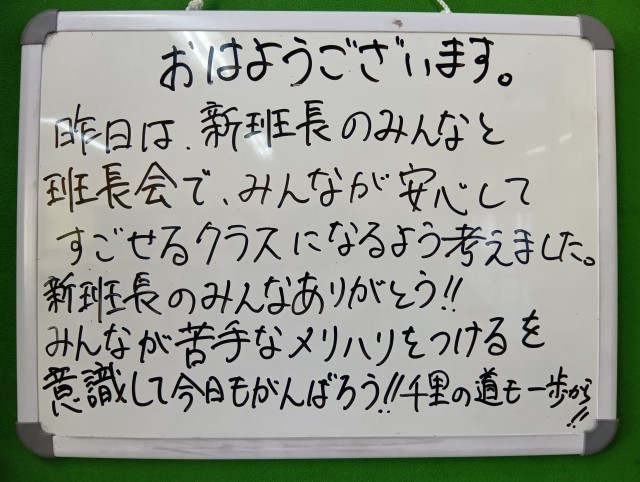 おはようございます。
昨日は、新班長のみんなと
班長会で、みんなが安心して
すごせるクラスになるよう考えました。
新班長のみんなありがとう!!
みんなが苦手なメリハリをつけるを
意識して今日もがんばろう!!千里の道も一歩から!!